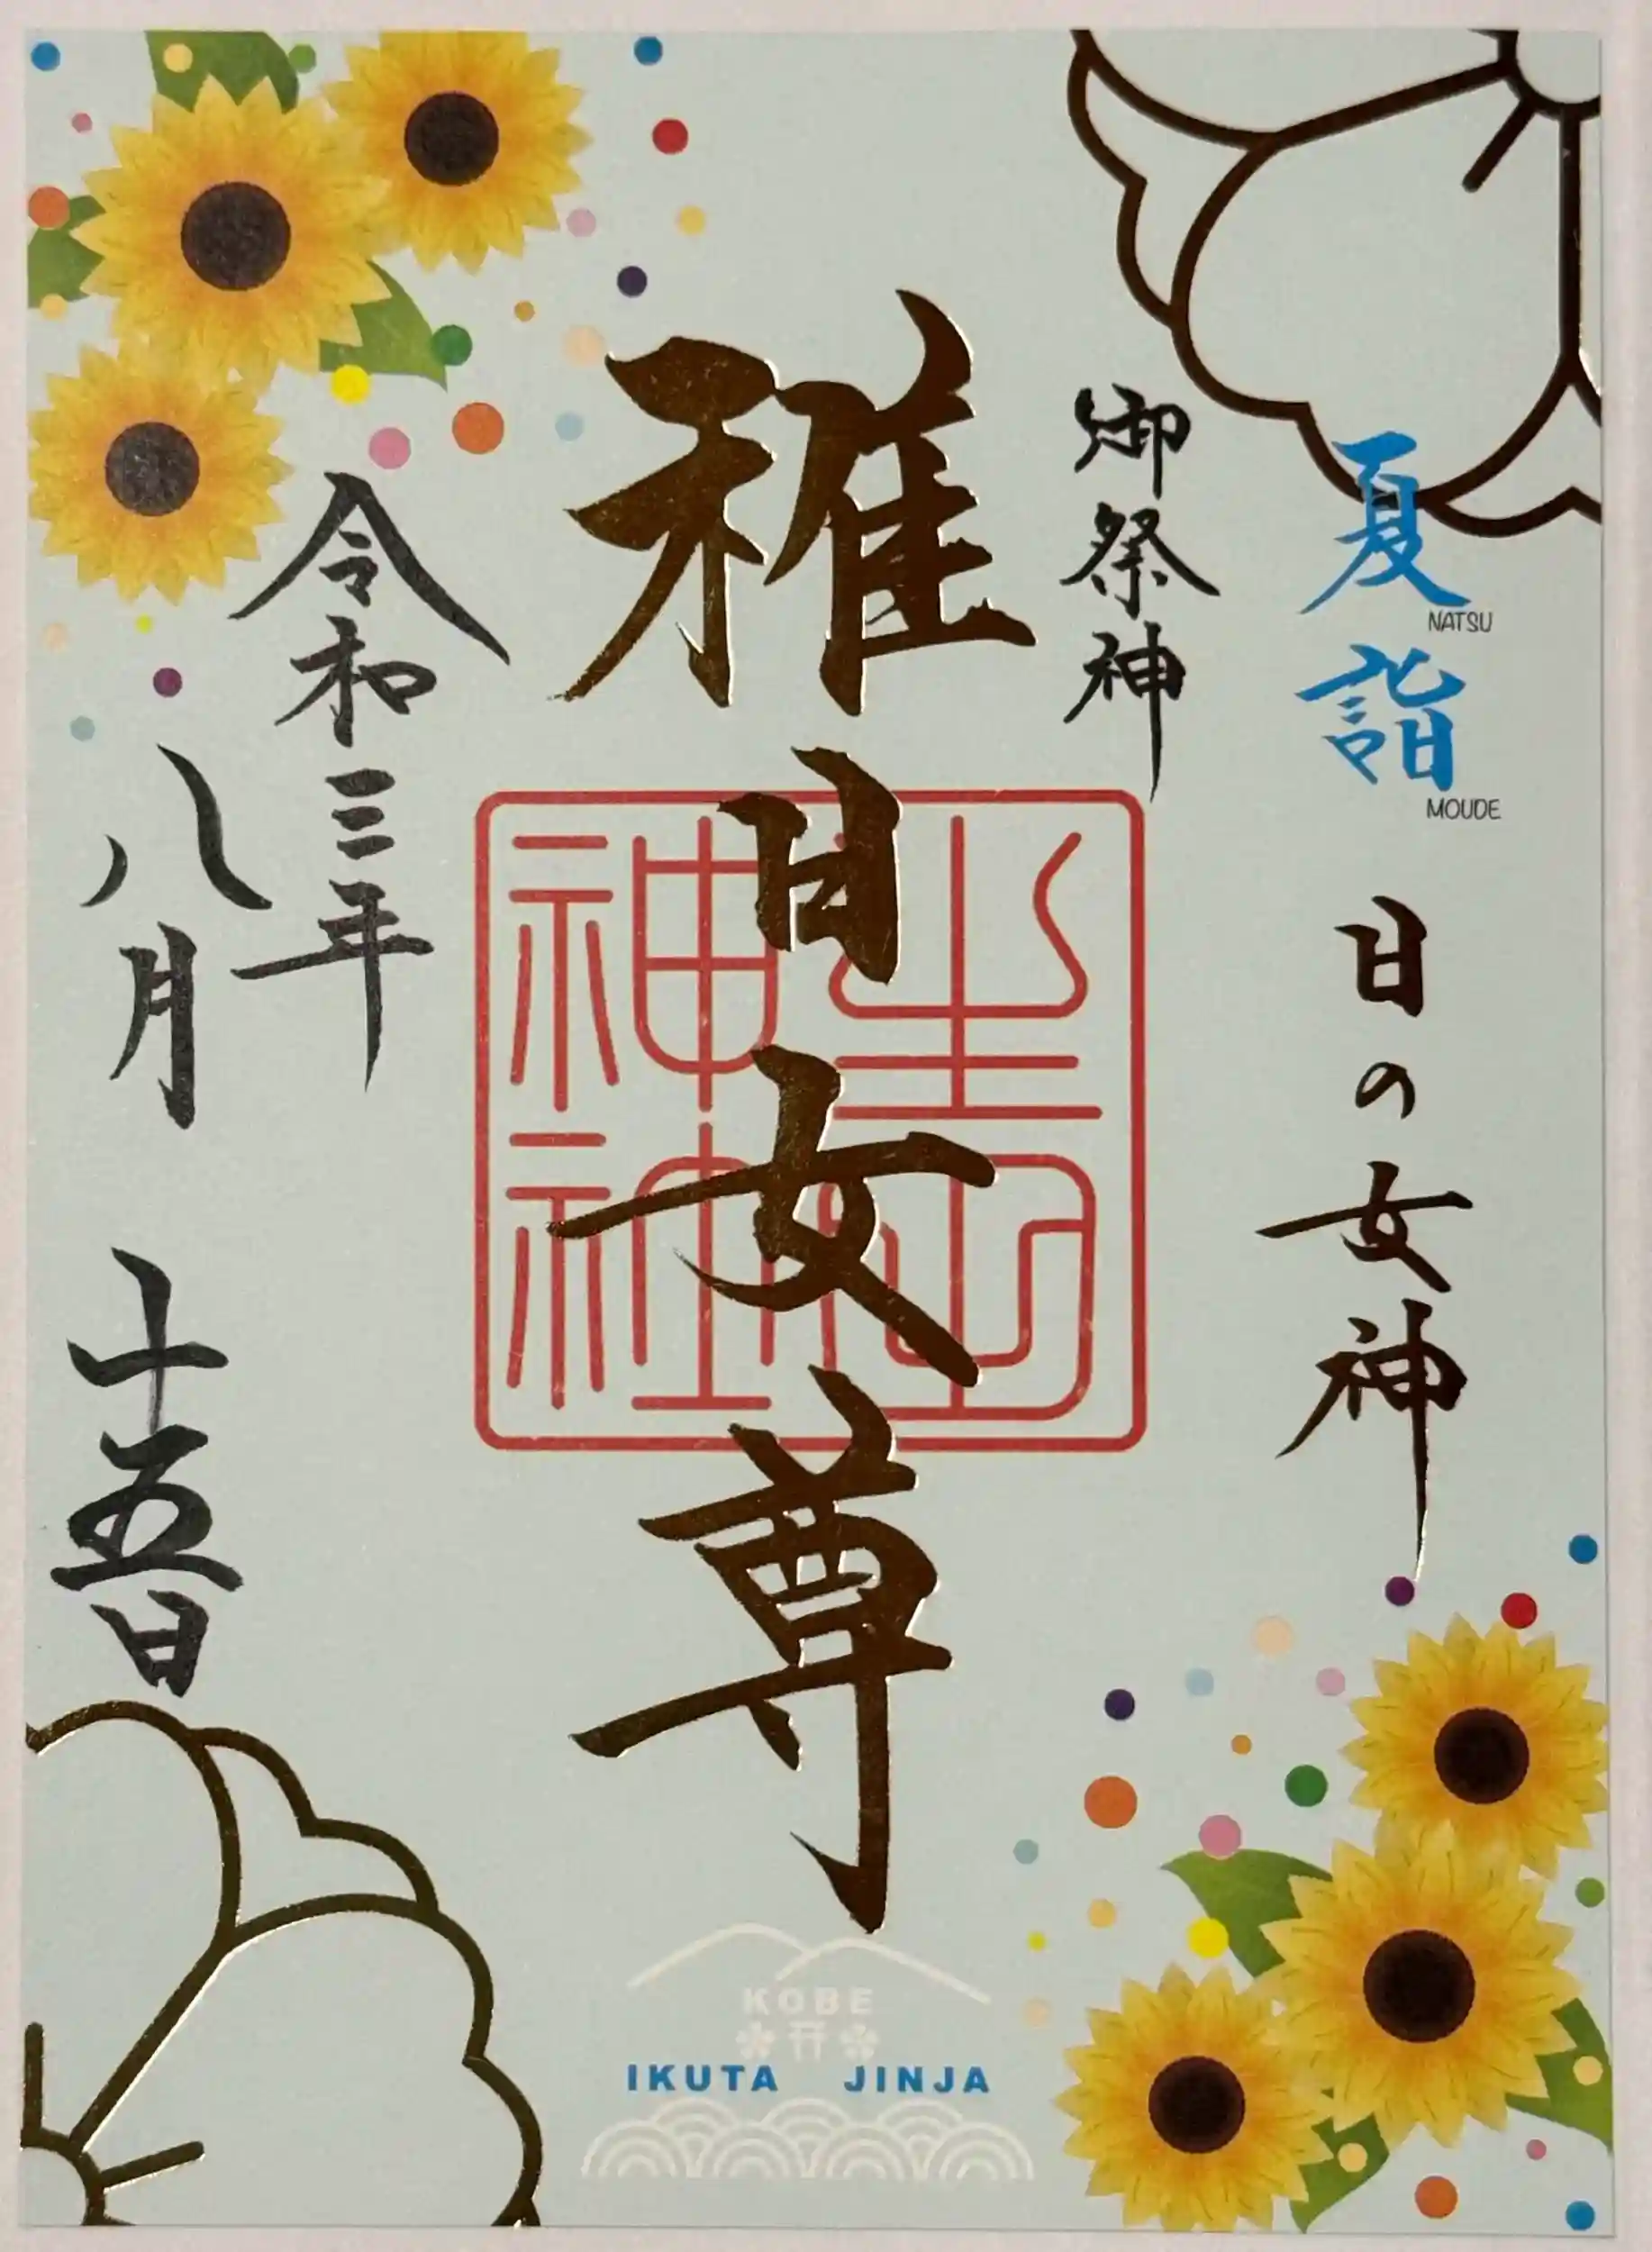 夏詣
NATSU
MOUDE
日の女神
御祭神
稚日女尊
生田神社
令和三年
八月十五日
KOBE
IKUTA JINJA